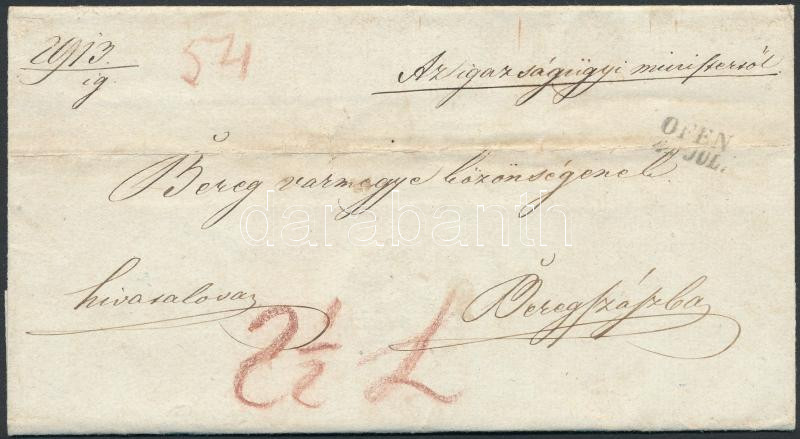 2913.
ig.
54
Az igazságügyi ministertől.
OFEN
JUL.
Bereg vármegye közönségének.
darabanth
hivatalosan
Beregszászba
2½ L